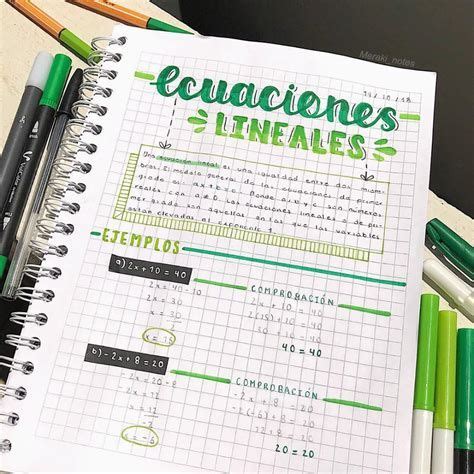 Meraki_notes
14 / 10 / 18
ecuaciones
LINEALES
Una ecuación lineal es una igualdad entre dos miem-
bros. El modelo general de las ecuaciones de primer
grado es: ax + b = 0. Donde a y b son números
reales con a ≠ 0. Las ecuaciones lineales o de pri-
mer grado son aquellas en las que las variables
están elevadas al exponente 1.
EJEMPLOS
a) 2x + 10 = 40
2x = 40 - 10
2x = 30
x = 30
2
x = 15
COMPROBACIÓN
2x + 10 = 40
2(15) + 10 = 40
30 + 10 = 40
40 = 40
b) -2x + 8 = 20
-2x = 20 - 8
-2x = 12
x = 12
-2
x = -6
COMPROBACIÓN
-2x + 8 = 20
-2(-6) + 8 = 20
12 + 8 = 20
20 = 20